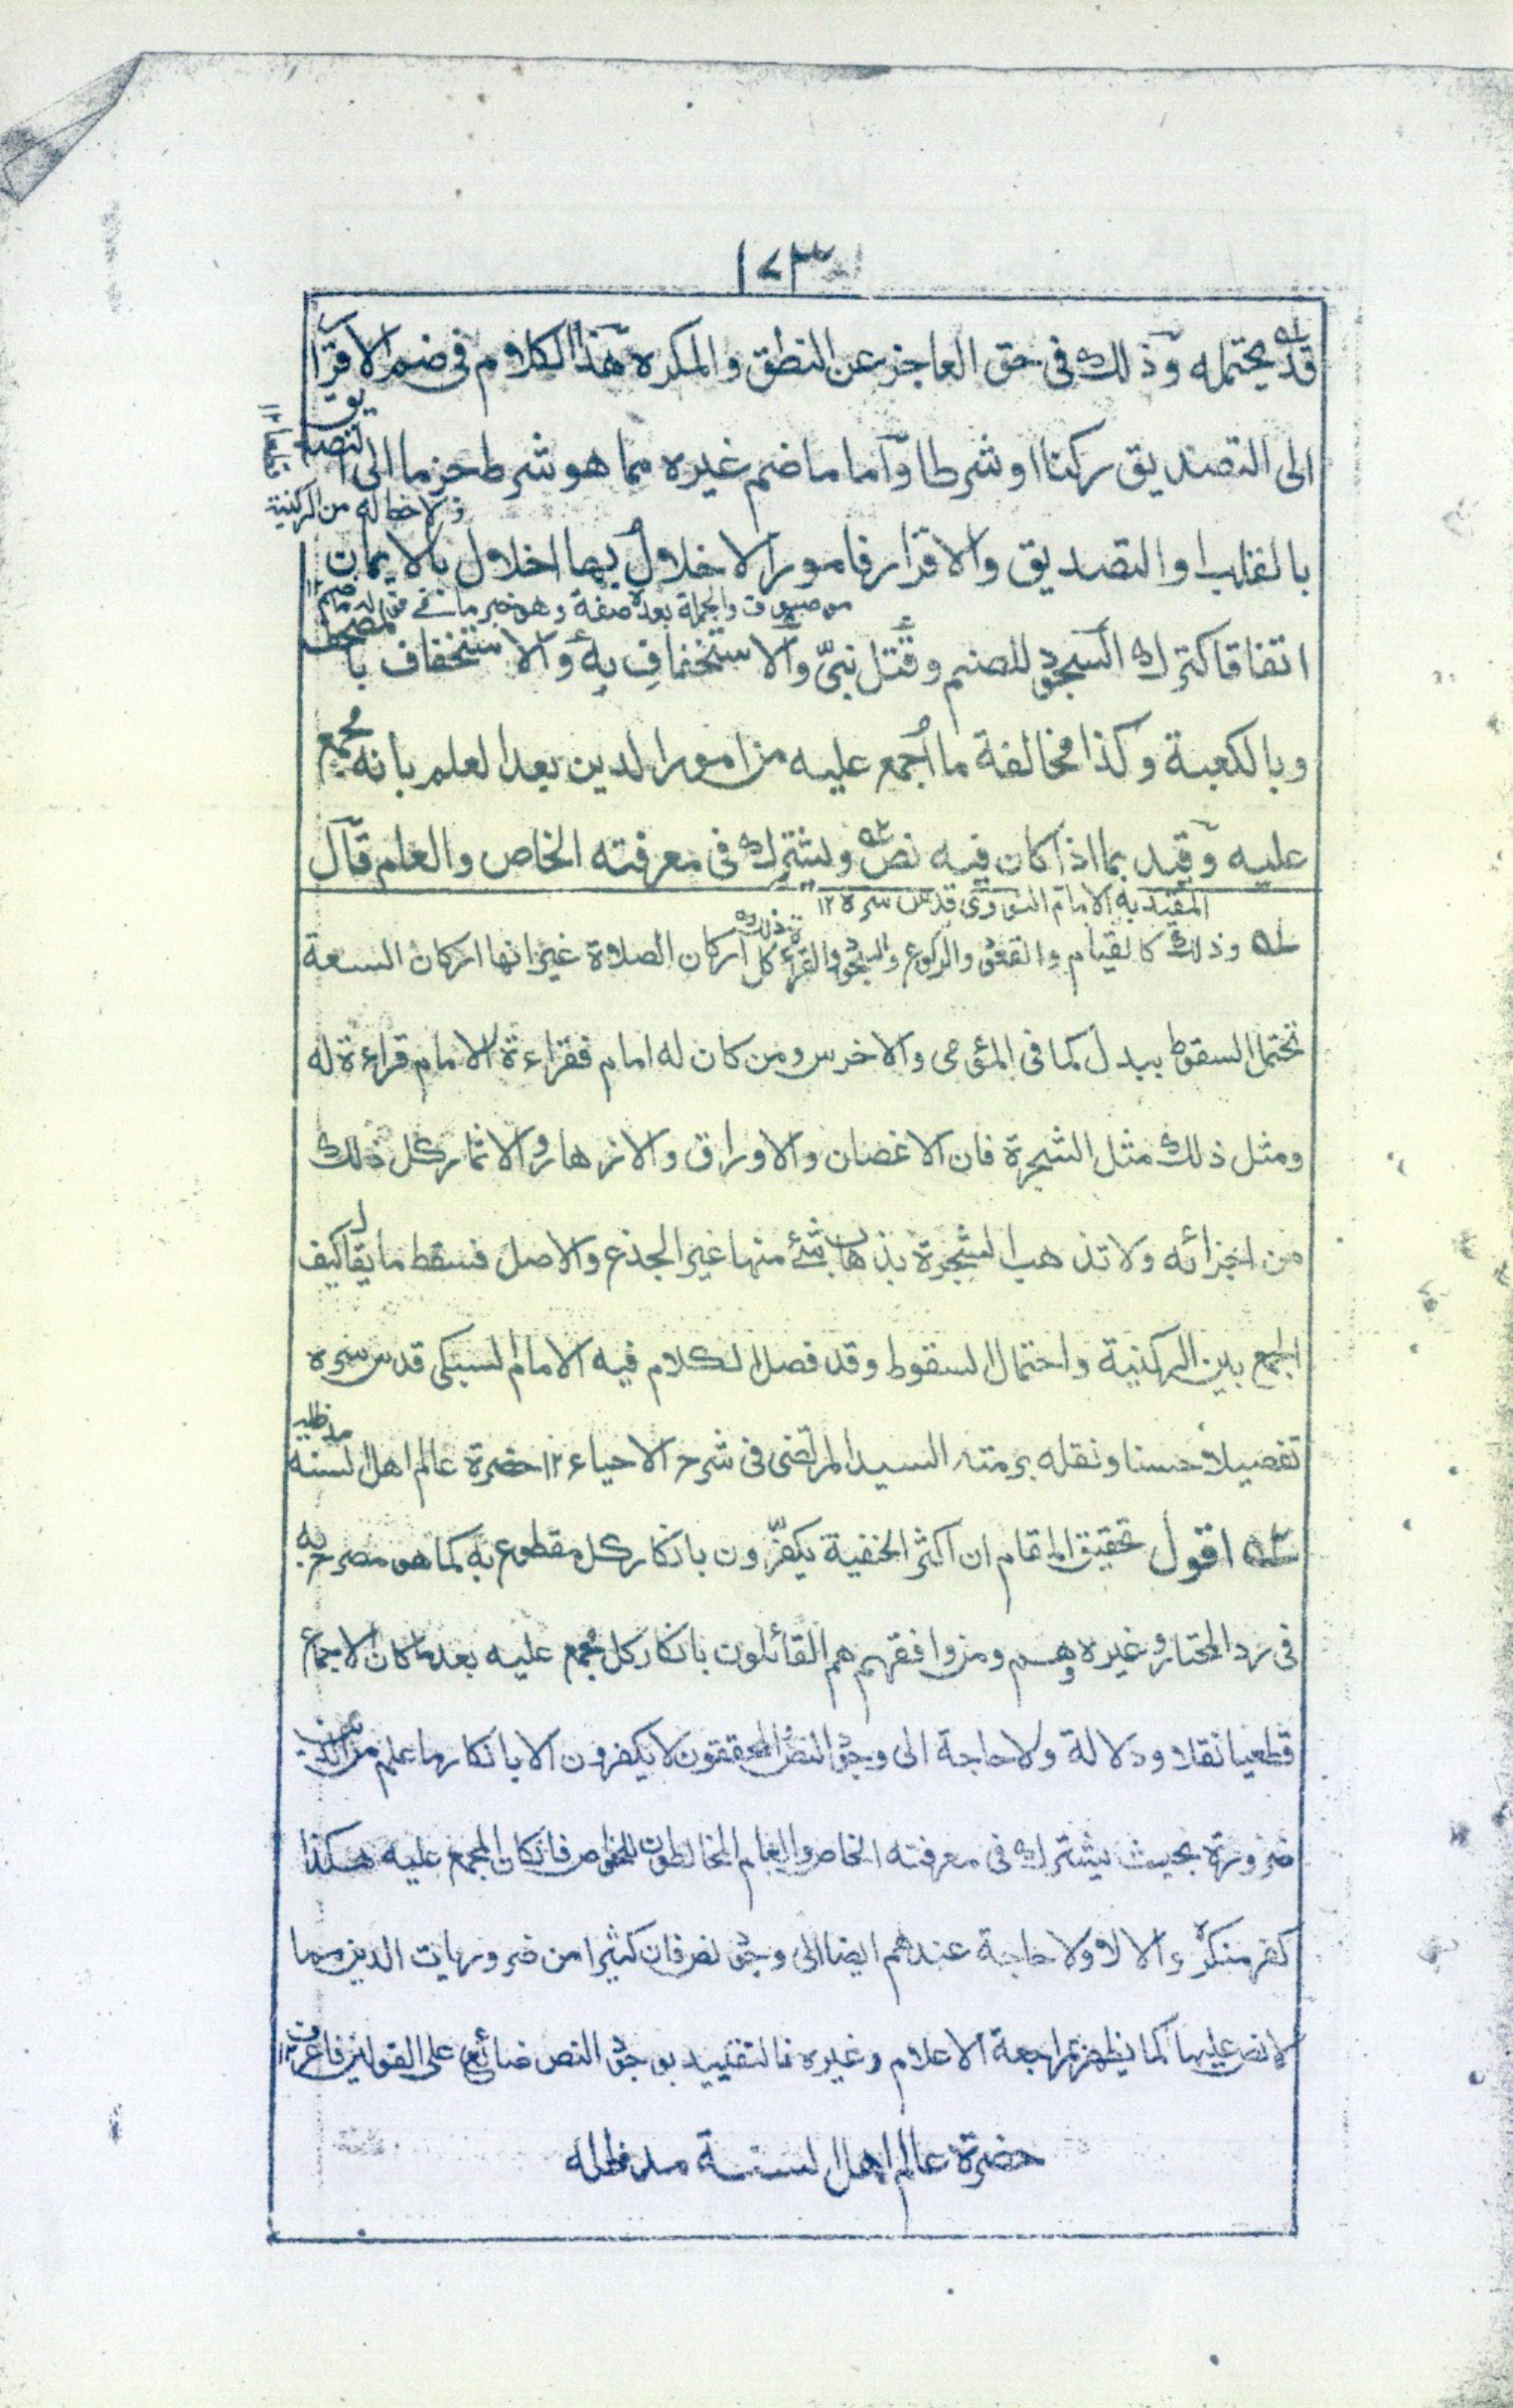 ١٧٣
قد يحتمله وذلك فى حق العاجز عن النطق والمكره هذا الكلام فى ضم الاقرار
الى التصديق ركنا او شرطا واما ما ضم غيره مما هو شرط جزما الى التصديق
ولا حظ له من الركنية
بالقلب او التصديق والاقرار فامور الاخلال بها اخلال بالايمان
موصوف والجملة بعده صفة وهو خبر ما فى قوله ما ضم ١٢
اتفاقا كترك السجود للصنم وقتل نبىّ والاستخفافِ به والاستخفاف بالمصحف
وبالكعبة وكذا مخالفة ما أُجمع عليه من امور الدين بعد العلم بانه مجمع
عليه وقيد بما اذا كان فيه نص ويشترك فى معرفته الخاص والعام قال
المقيد به الامام النووى قدس سره ١٢
١ه وذلك كالقيام والقعود والركوع والسجود والقراءة كل ذلك اركان الصلاة غير انها اركان السعة
تحتمل السقوط ببدل كما فى المؤمى والاخرس ومن كان له امام فقراءة الامام قراءة له
ومثل ذلك مثل الشجرة فان الاغصان والاوراق والازهار والاثمار كل ذلك
من اجزائه ولا تذهب الشجرة بذهاب شئ منها غير الجذع والاصل فسقط ما يقال كيف
الجمع بين الركنية واحتمال السقوط وقد فصل الكلام فيه الامام السبكى قدس سره
تفصيلا حسنا ونقله برمته السيد المرتضى فى شرح الاحياء ١٢ حضرة عالم اهل السنة مد ظله
٢ه اقول تحقيق المقام ان اكثر الحنفية يكفّرون بانكار كل مقطوع به كما هو مصرح به
فى رد المحتار وغيره وهم ومن وافقهم هم القائلون بانكار كل مجمع عليه بعد ما كان الاجماع
قطعيا نقلا ودلالة ولا حاجة الى وجود النص والمحققون لا يكفرون الا بانكار ما علم من الدين
ضرورة بحيث يشترك فى معرفته الخاص والعام المخالطون للخواص فان كان المجمع عليه هكذا
كفر منكره والا لا ولا حاجة عندهم ايضا الى وجود نص فان كثيرا من ضروريات الدين مما
لا نص عليها كما يظهر بمراجعة الاعلام وغيره فالتقييد بوجود النص ضائع على القولين فاعرف ١٢
حضرة عالم اهل السنة مد ظله